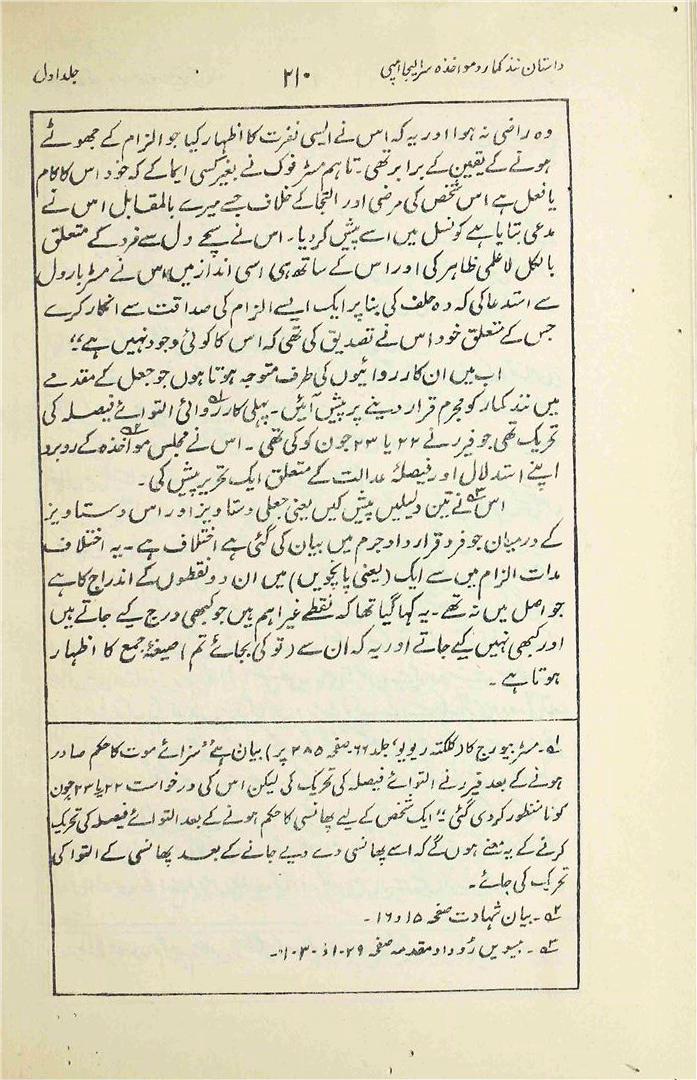 داستان نند کمار و مواخذہ سر ایلیجا امپی
۲۱۰
جلد اول
وہ راضی نہ ہوا اور یہ کہ اس نے ایسی نفرت کا اظہار کیا جو الزام کے جھوٹے
ہونے کے یقین کے برابر تھی۔ تاہم مسٹر فوک نے بغیر کسی ایما کے کہ خود اس کا کام
یا فعل ہے اس شخص کی مرضی اور التجا کے خلاف جسے میرے بالمقابل اس نے
مدعی بتایا ہے کونسل میں اسے پیش کر دیا۔ اس نے سچے دل سے فرد کے متعلق
بالکل لاعلمی ظاہر کی اور اس کے ساتھ ہی اسی انداز میں اس نے مسٹر بارول
سے استدعا کی کہ وہ حلف کی بنا پر ایک ایسے الزام کی صداقت سے انکار کرے
جس کے متعلق خود اس نے تصدیق کی تھی کہ اس کا کوئی وجود نہیں ہے“
اب میں ان کارروائیوں کی طرف متوجہ ہوتا ہوں جو جعل کے مقدمے
میں نند کمار کو مجرم قرار دینے پر پیش آئیں۔ پہلی کارروائی التوائے فیصلہ کی
تحریک تھی جو فیرر نے ۲۲ یا ۲۳ جون کو کی تھی۱؎۔ اس نے مجلس مواخذہ کے روبرو
اپنے استدلال اور فیصلۂ عدالت کے متعلق ایک تحریر پیش کی۲؎۔
اس۳؎ نے تین دلیلیں پیش کیں یعنی جعلی دستاویز اور اس دستاویز
کے درمیان جو فرد قرارداد جرم میں بیان کی گئی ہے اختلاف ہے۔ یہ اختلاف
مدات الزام میں سے ایک (یعنی پانچویں) میں ان دو نقطوں کے اندراج کا ہے
جو اصل میں نہ تھے۔ یہ کہا گیا تھا کہ نقطے غیر اہم ہیں جو کبھی درج کیے جاتے ہیں
اور کبھی نہیں کیے جاتے اور یہ کہ ان سے (تو کی بجائے تم) صیغۂ جمع کا اظہار
ہوتا ہے۔
۱؎۔ مسٹر بیورج کا (کلکتہ ریویو، جلد ۶۶ صفحہ ۲۸۵ پر) بیان ہے ”سزائے موت کا حکم صادر
ہونے کے بعد فیرر نے التوائے فیصلہ کی تحریک کی لیکن اس کی درخواست ۲۲ یا ۲۳ جون
کو نامنظور کر دی گئی“ ایک شخص کے لیے پھانسی کا حکم ہونے کے بعد التوائے فیصلہ کی تحریک
کرنے کے یہ معنے ہوں گے کہ اسے پھانسی دے دیے جانے کے بعد پھانسی کے التوا کی
تحریک کی جائے۔
۲؎۔ بیان شہادت صفحہ ۱۵ و ۱۶۔
۳؎۔ بیسویں روداد مقدمہ صفحہ ۱۰۲۹ و ۱۰۳۰۔